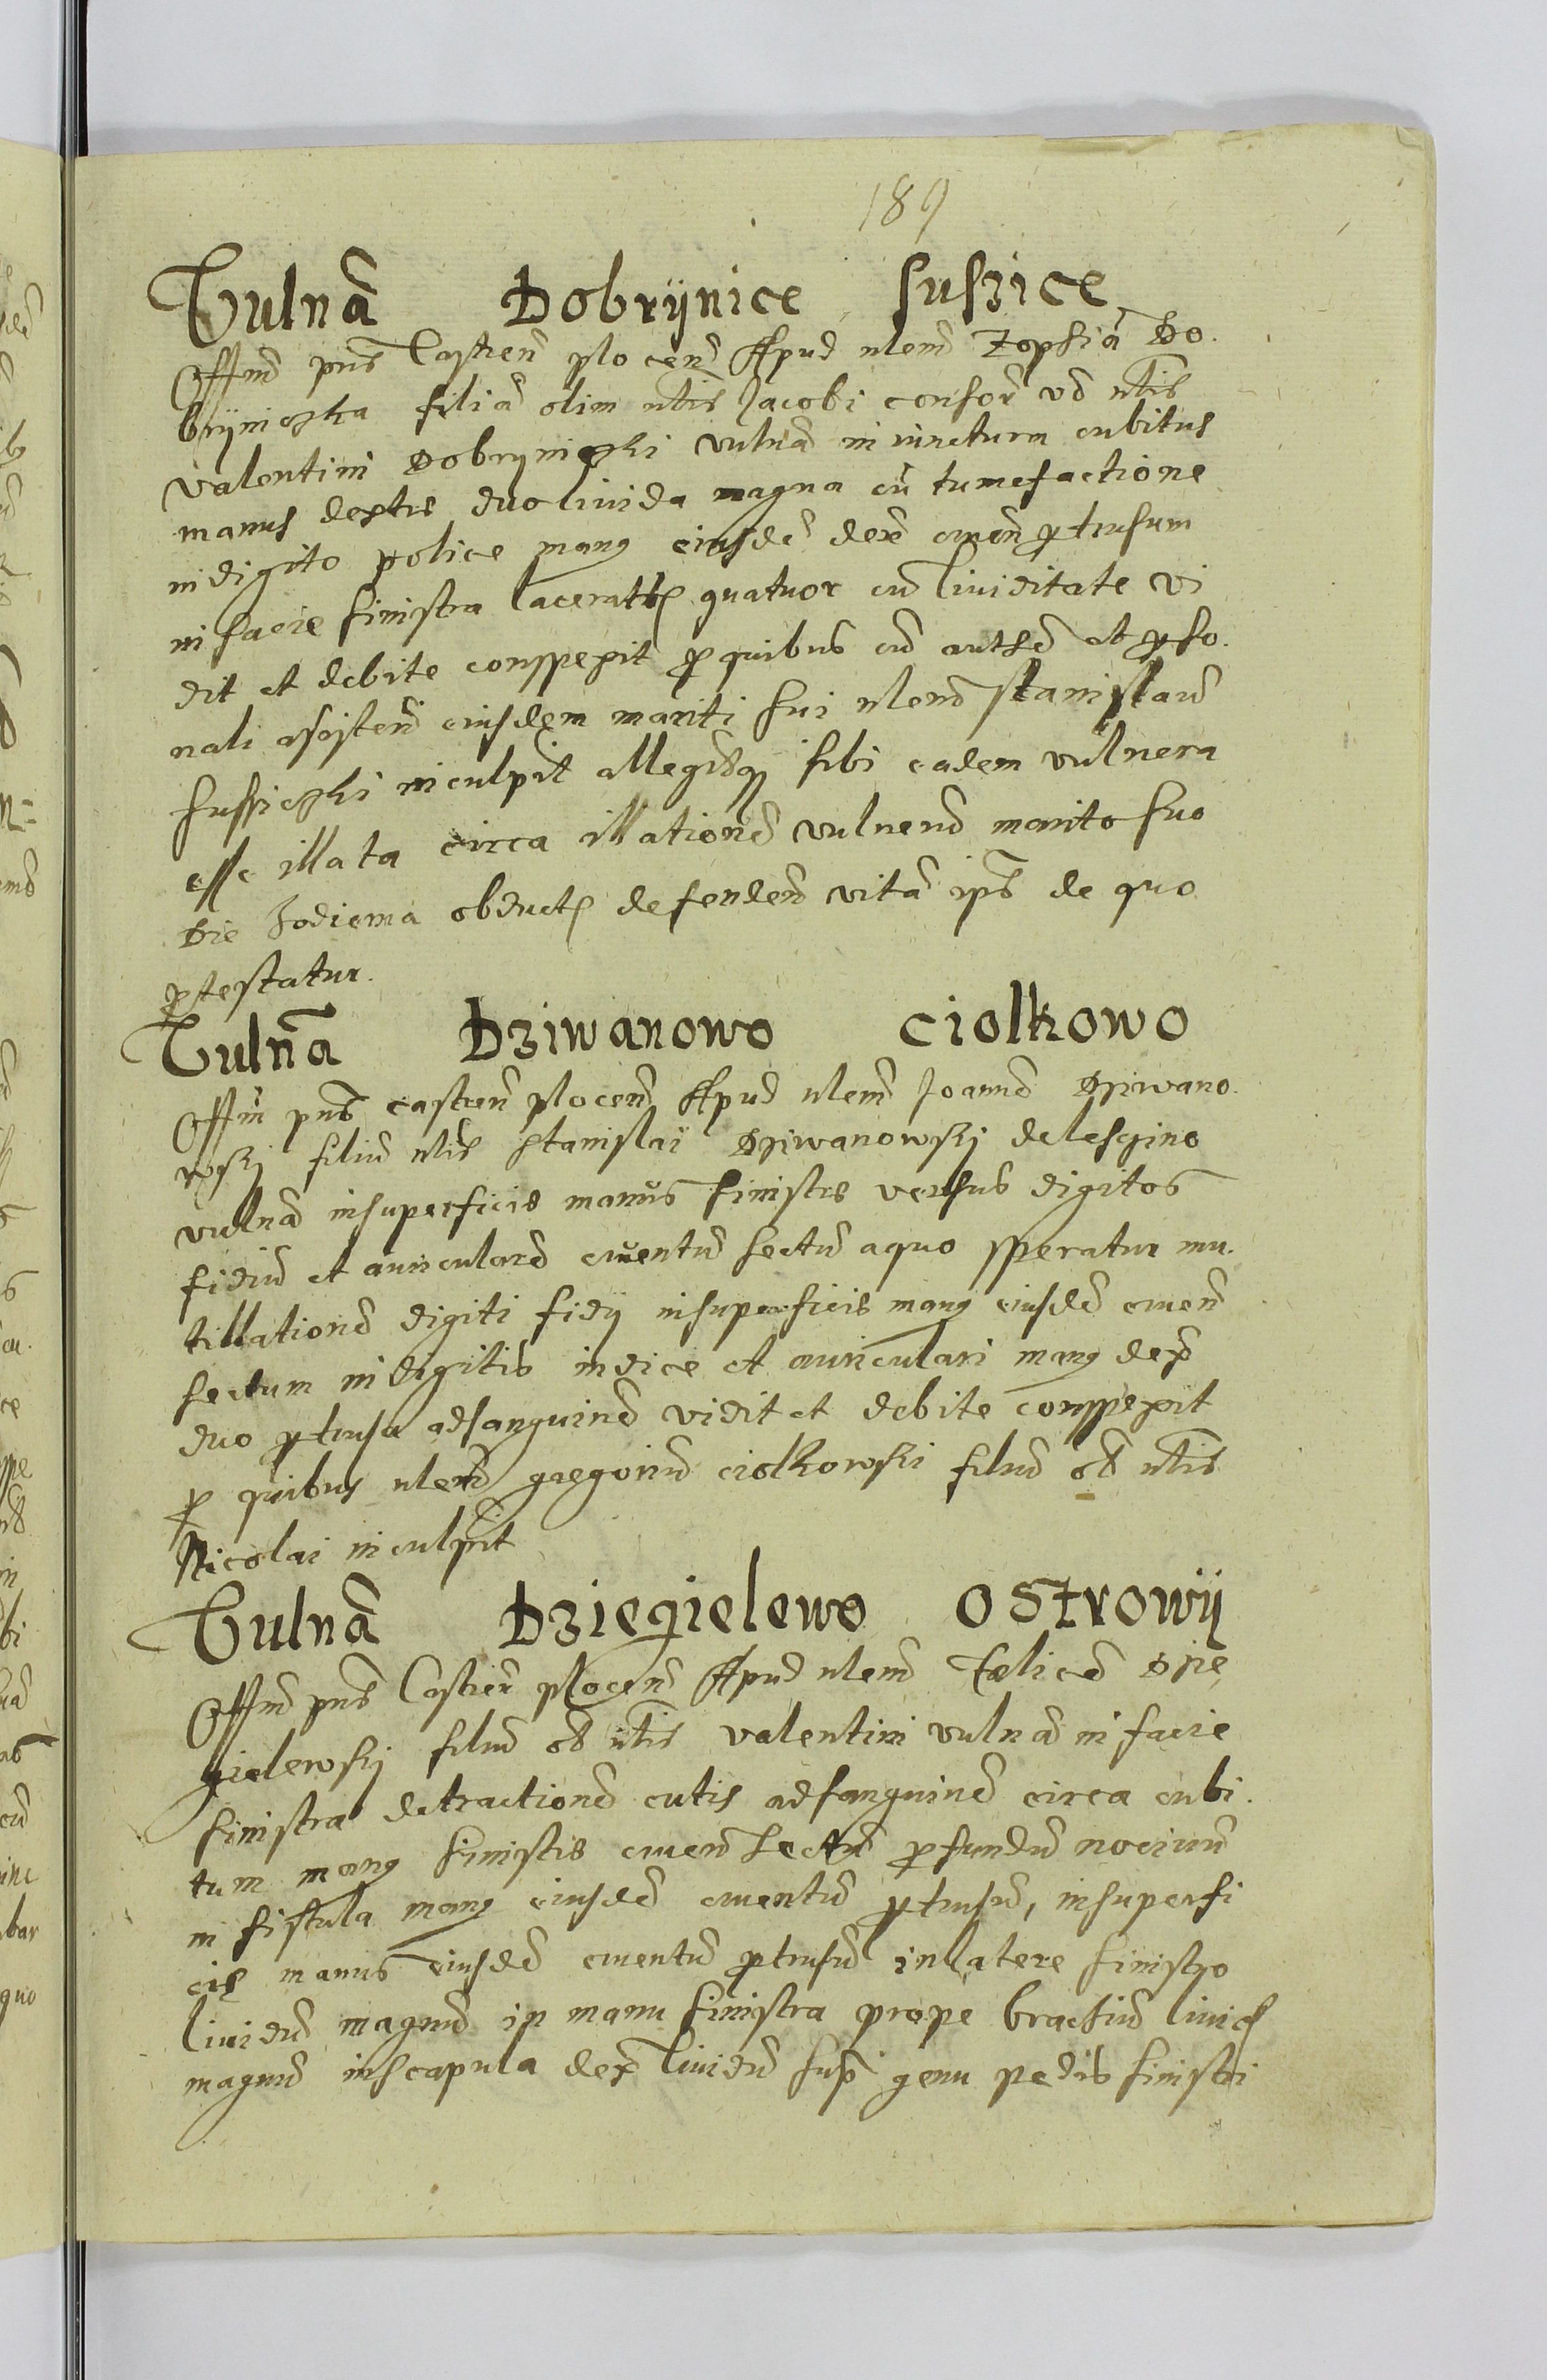 189
Vulnã Dobrÿnice Suszice
Offm̃ pñs Castreñ ploceñ Apud nlem̃ Zophiã Do.
brÿniczka filiã olim nlis Jacobi consor̃ vo nlis
Valentini Dobryniczki vulña in iunctura cubitus
manus dextre duo livida magna cũ tumefactione
in digito police manq eiusdẽ dex cruen̄ ptrusum
in facie sinistra quatuor cũ lividitate vi
dit et debite conspexit p quibus cũ
nali assisteñ eiusdem mariti sui nlem̃ Stanislaũ
Susziczki inculpĩt allegãdq sibi eadem vulnera
esse illata circa illationẽ vulnerũ marito suo
Die hodierna defendeñ vitã ips de quo
ptestatur.
Vulnã Dziwanowo Ciolkowo
Offm̃ pñs castreñ ploceñ Apud nlem̃ Joannẽ Dziwano.
wskj filiũ nlis Stanislaï Dziwanowskj
vulnã insuperficie manus sinistre versus digitos
fidiũ et auricularẽ cruentũ sectũ aquo speratur mu.
tillationẽ digiti fidÿ insuperficie manq eiusdẽ cruen̄
sectum in digitis indice et auriculari manq dex
duo ptrusa adsanguinẽ vidit et debite conspexit
p quibus nlem̃ gregoriũ ciolkowski filiũ ol nlis
Nicolai inculpĩt
Vulnã Dziegielewo Ostrowÿ
Offm̃ pñs Castreñ ploceñ Apud nlem̃ Fælicẽ Dzie
gielewskj filiũ ol nlis Valentini vulnã in facie
sinistra detractionẽ cutis adsanguinẽ circa cubi.
tum manq sinistre cruen̄ sectũ pfundũ nocivũ
in fistula manq eiusdẽ cruentũ ptrusũ, insuperfi
cie manus eiusdẽ cruentũ ptrusũ inlatere sinistro
lividũ magnũ in manu sinistra prope brachiũ livid
magnũ inscapula dex lividũ sup genu pedis sinistri